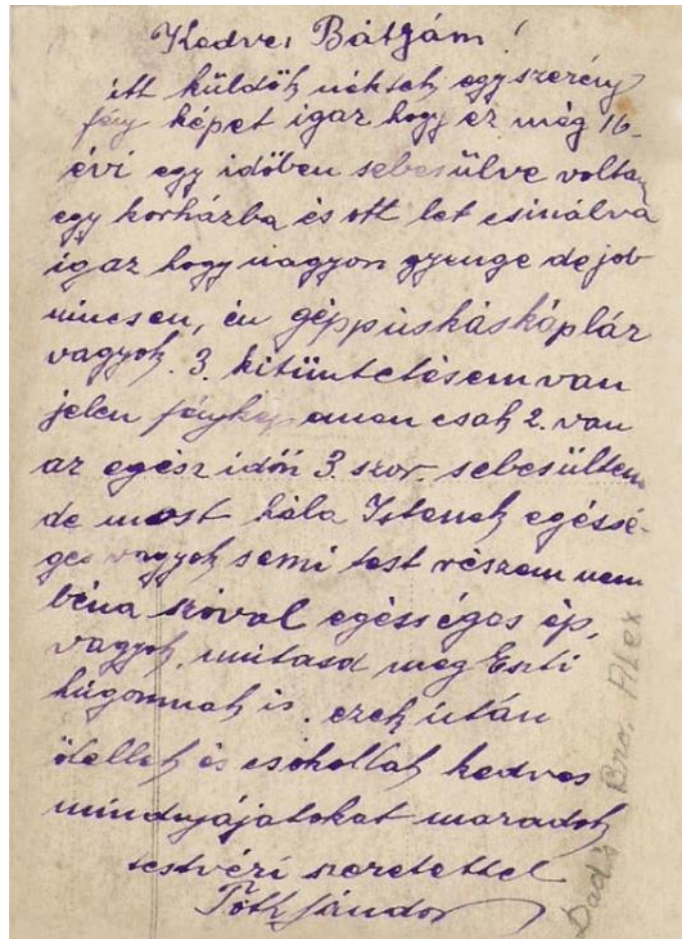 Kedves Bátyám!
itt küldök néktek egy szerény
fény képet igaz hogy ez még 16-
évi egy időben sebesülve voltam
egy korházba és ott let csinálva
igaz hogy nagyon gyenge de job
nincsen, én géppuskás káplár
vagyok. 3. kitüntetésem van
jelen fénykép emen csak 2. van
az egész idön 3. szor. sebesültem
de most hála Istenek egéssé-
ges vagyok semi test részem nem
béna szóval egésséges ép,
vagyok, mutasd meg Eszti
húgomnak is. ezek után
ölellek és csokollak kedves
mindnyájatokat maradok
testvéri szeretettel
Tóth Sándor
Dad's Bro. Alex